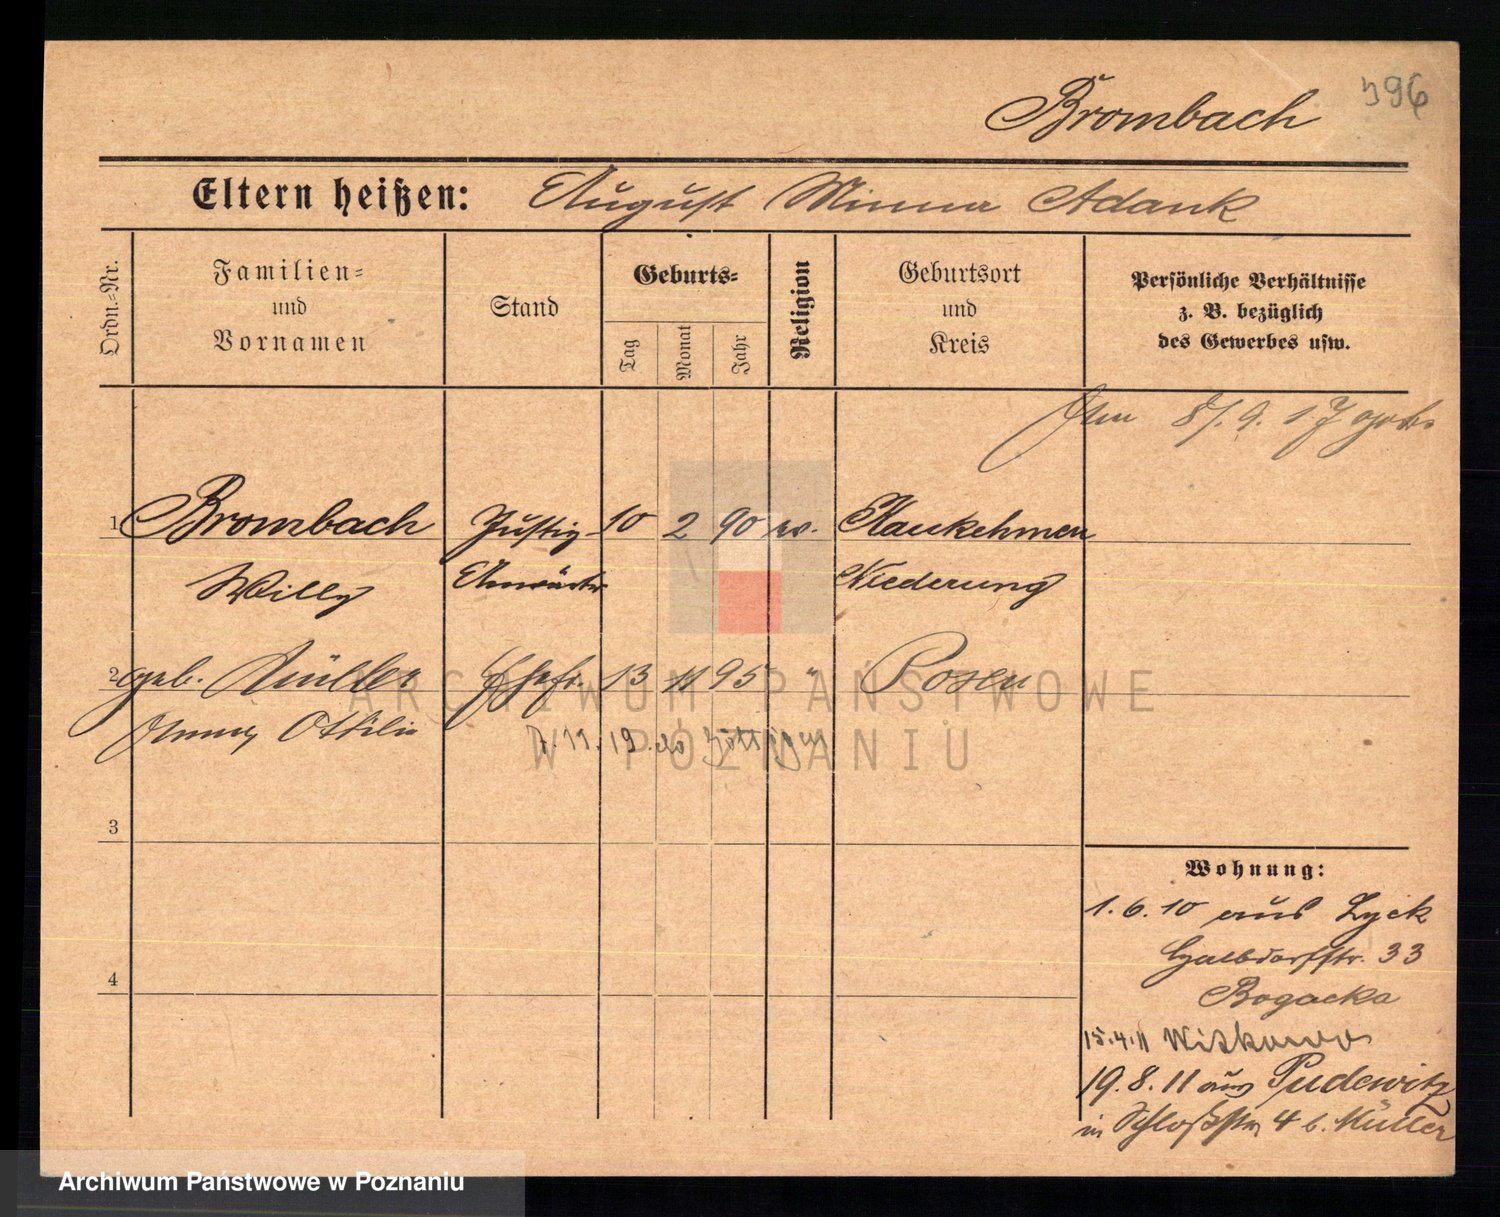 396
Brombach
Eltern heißen: August Minna Adank
Ordn.=Nr.
Familien=
und
Vornamen
Stand
Geburts=
Tag
Monat
Jahr
Religion
Geburtsort
und
Kreis
Persönliche Verhältnisse
z. B. bezüglich
des Gewerbes usw.
8/. 9. 17
1 Brombach Justiz- 10 2 90 ev. Kaukehmen
Willy Anwärter Niederung
2 geb. Müller Ehefr. 13 11 95 " Posen
Ottilie
11. 19.
3
4
Wohnung:
1. 6. 10 aus Lyck
Halbdorfstr. 33
Bogacka
15.4.11 Witkowo
19. 8. 11 aus Pudewitz
in Schloßstr 4 b. Müller
ARCHIWUM PAŃSTWOWE
W POZNANIU
Archiwum Państwowe w Poznaniu